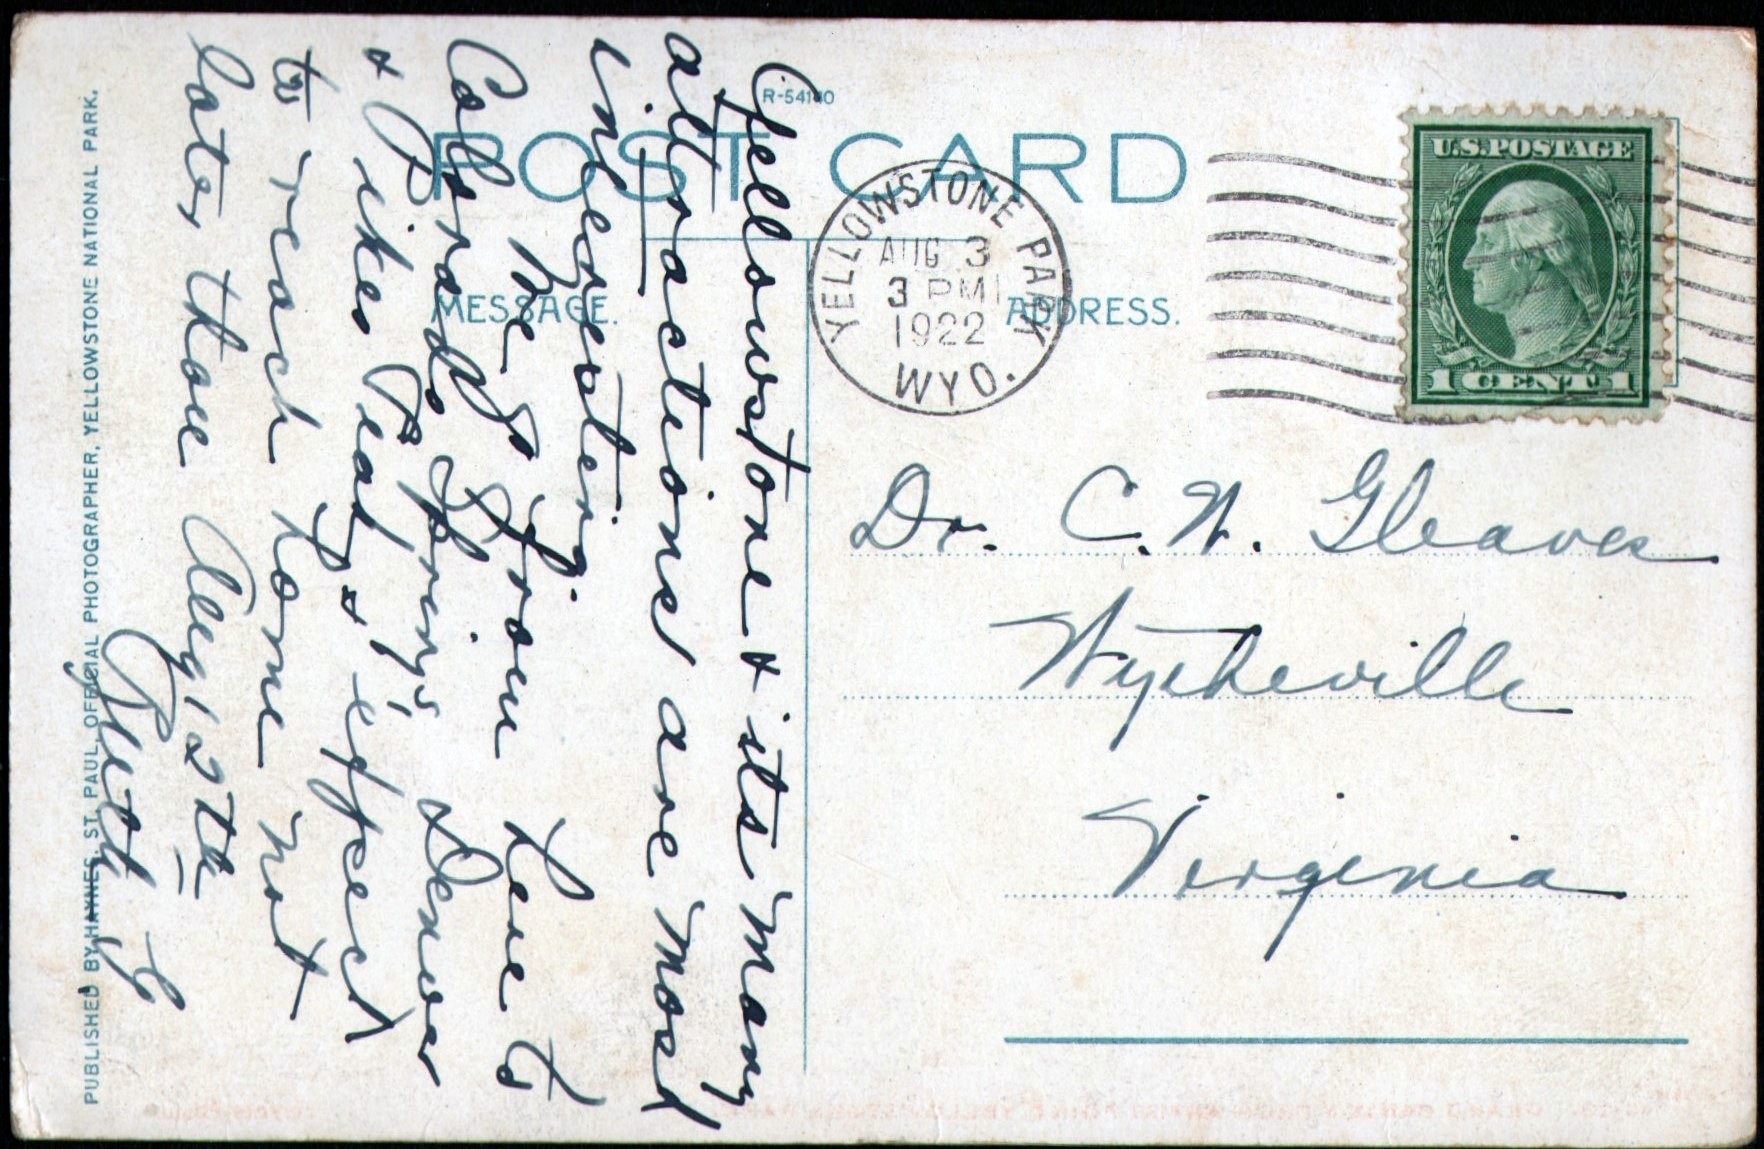 R-54140
POST CARD
MESSAGE.
ADDRESS.
YELLOWSTONE PARK
AUG 3
3 PM
1922
WYO.
U.S. POSTAGE
1 CENT 1
Yellowstone & its many
attractions are most
interesting.
We go from here to
Colorado Springs, Denver
& Pikes Peak, & expect
to reach home not
later than Aug. 12th
Betty G
Dr. C. W. Gleaves
Wytheville
Virginia
PUBLISHED BY HAYNES, ST. PAUL, OFFICIAL PHOTOGRAPHER, YELLOWSTONE NATIONAL PARK.